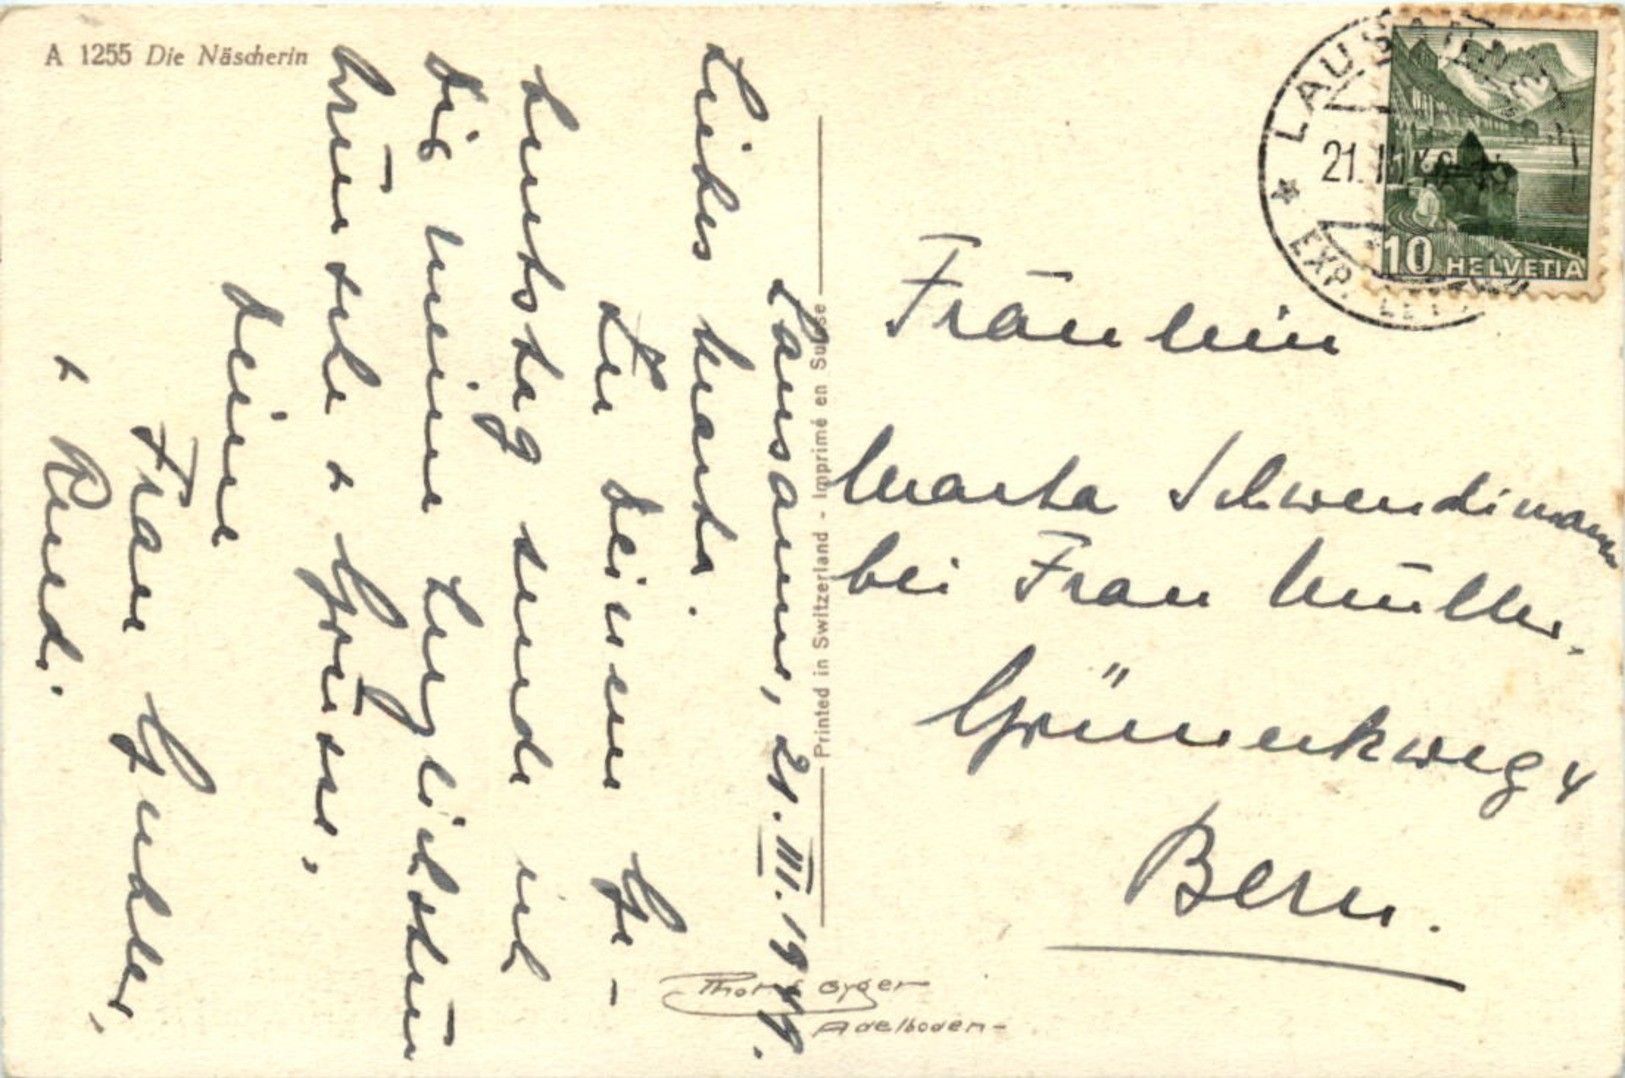 A 1255 Die Näscherin
Lausanne, 21. III. 1944.
Liebes Marta.
Zu Deinem Ge-
burtstag sende ich
Dir meine herzlichsten
Wünsche + Grüsse,
Deine
Frau Gubler,
+ Ruedi.
Printed in Switzerland - Imprimé en Suisse
Photo Gyger
Adelboden-
LAUSANNE
21. III.
EXP. LETT
10 HELVETIA
Fräulein
Marta Schwendimann
bei Frau Müller.
Grüneckweg 4
Bern.